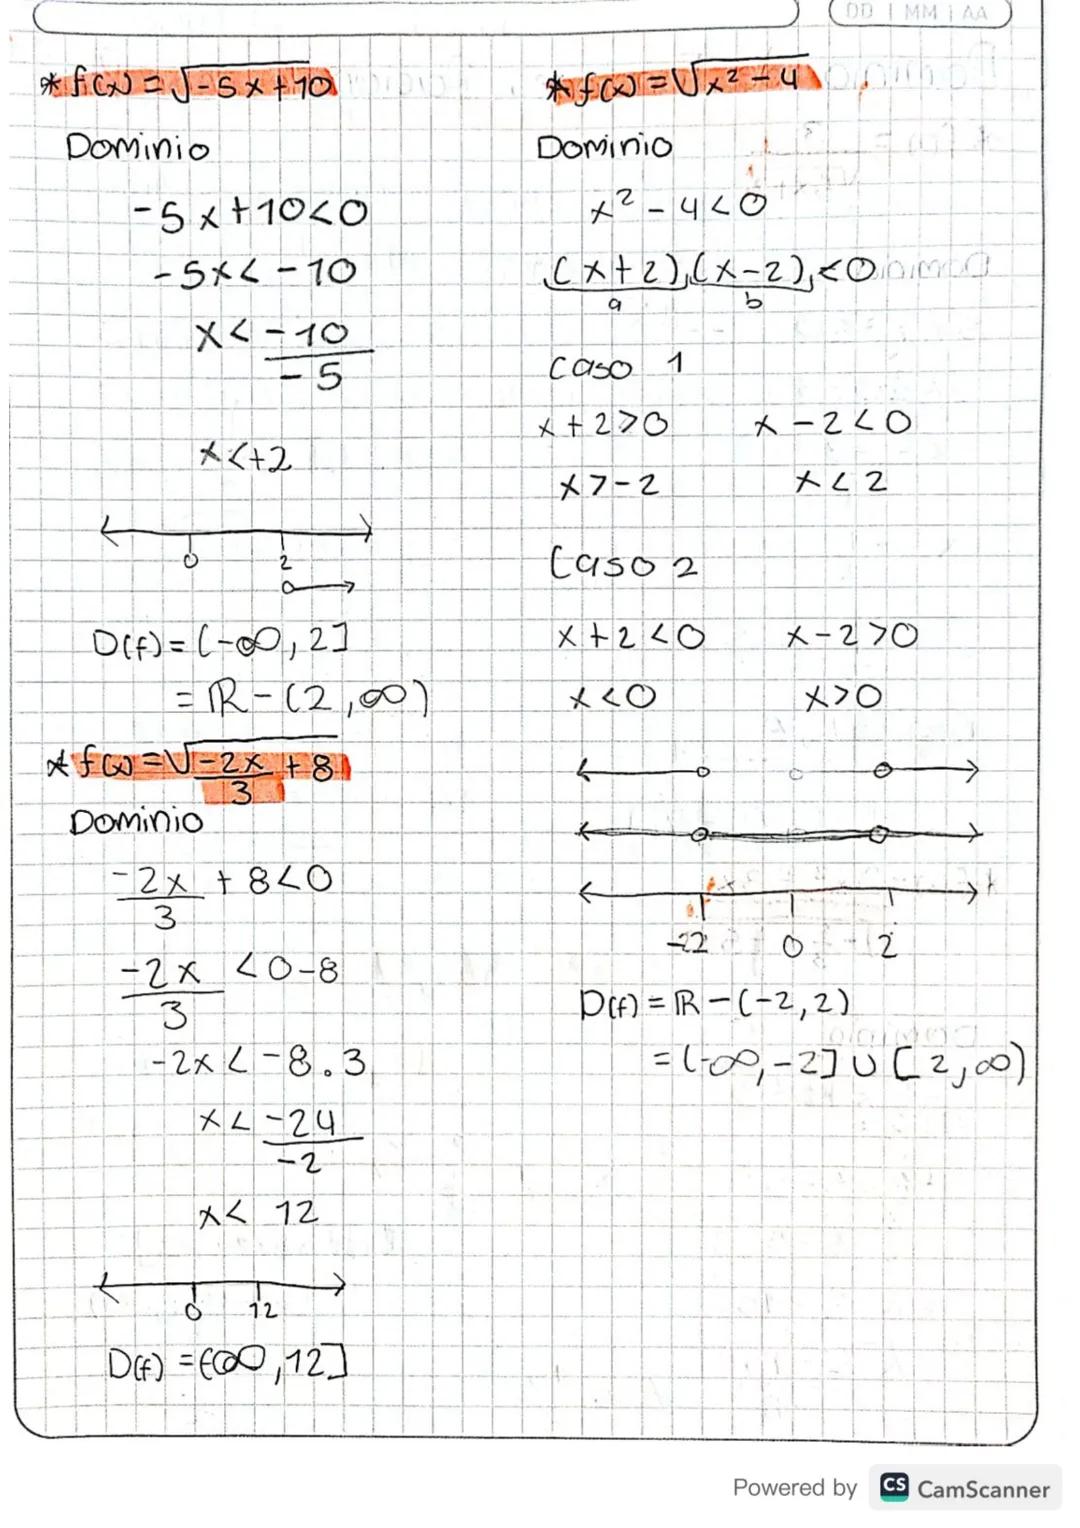 DD | MM | AA
* f(x) = √-5x+10
Dominio
-5x+10<0
-5x<-10
x< -10
-5
x<+2
0 2
D(f)= (-∞, 2]
= ℝ-(2,∞)
* f(x) = √-2x + 8
3
Dominio
-2x + 8<0
3
-2x <0-8
3
-2x<-8.3
x< -24
-2
x< 12
0 12
D(f) = (-∞, 12]
* f(x) = √x² - 4
Dominio
x² - 4<0
(x+2)(x-2)<0
a b
Caso 1
x+2>0 x-2<0
x>-2 x<2
Caso 2
x+2<0 x-2>0
x<0 x>0
-2 0 2
D(f) = ℝ-(-2,2)
= (-∞,-2] ∪ [2,∞)
Powered by CS CamScanner